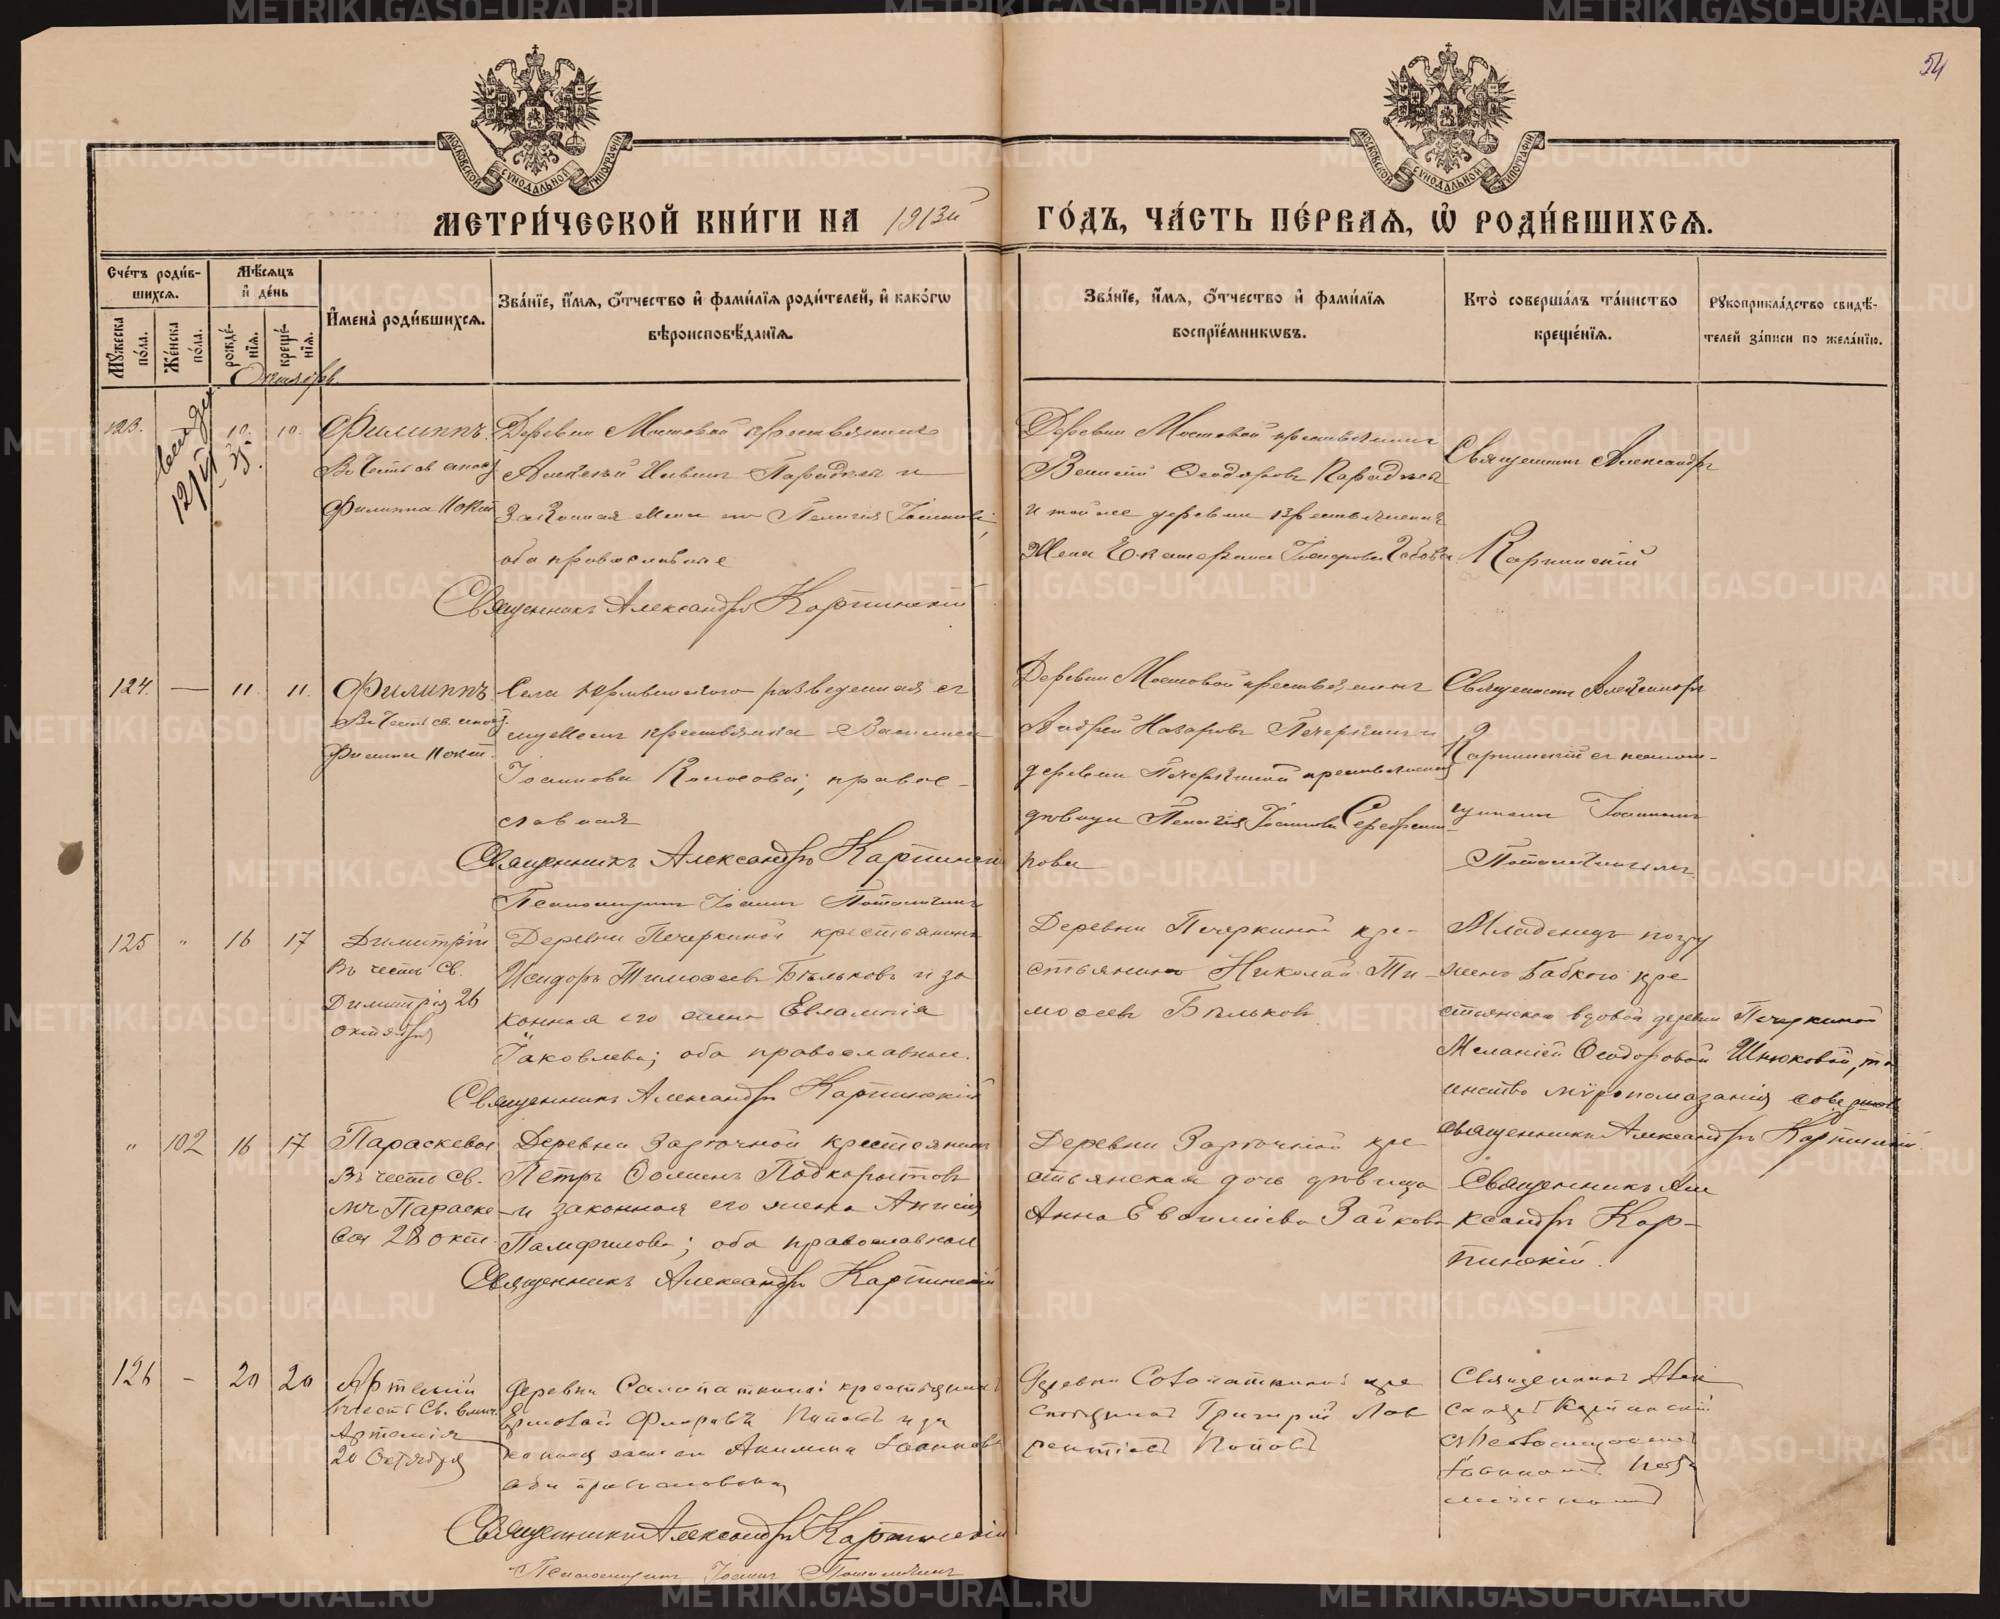 54
МОСКОВСКОЙ СΥНОДАЛЬНОЙ ТИПОГРАФІИ
МОСКОВСКОЙ СΥНОДАЛЬНОЙ ТИПОГРАФІИ
МЕТРИ́ЧЕСКОЙ КНИ́ГИ НА 1913й
ГО́ДЪ, ЧА́СТЬ ПЕ́РВАѦ, Ѽ РОДИ́ВШИХСѦ.
Сче́тъ роди́в-
шихсѧ.
Мѣ́сѧцъ
и҆ де́нь
И҆мена̀ роди́вшихсѧ.
Зва́нїе, и҆́мѧ, ѻ҆́тчество и҆ фами́лїѧ роди́телей, и҆ како́гѡ
вѣроисповѣ́данїѧ.
Мꙋ́жеска
по́ла.
Же́нска
по́ла.
рожде́-
нїѧ.
креще́-
нїѧ.
Зва́нїе, и҆́мѧ, ѻ҆́тчество и҆ фами́лїѧ
воспрїе́мникѡвъ.
Кто̀ соверша́лъ та́инство
креще́нїѧ.
Рꙋкоприкла́дство свидѣ́-
телей за́писи по жела́нїю.
Октябрь.
123. — 10. 10.
25.
12/VI
Филиппъ.
въ честь св. апост
Филиппа 11 окт
Деревни Мостовой крестьянинъ
Алексѣй
и
законная жена его Пелагія Іоаннова
оба православные
Священникъ Александръ Карпинскій
Деревни Мостовой крестьянинъ
Ѳеодоровъ
и той же деревни крестьянская
жена Екатерина
Священникъ Александръ
Карпинскій
124. — 11. 11.
Филиппъ
въ честь св. апост.
Филиппа 11 окт.
Села разведенная съ
мужемъ крестьянка
Іоаннова правос-
лавная
Священникъ Александръ Карпинскій
Псаломщикъ Іоаннъ
Деревни Мостовой крестьянинъ
Андрей Назаровъ Печеркинъ и
деревни Печеркиной крестьянская
дѣвица Пелагія Іоаннова Серебрени-
кова
Священникъ Александръ
Карпинскій съ псалом-
щикомъ Іоанномъ
125 " 16 17
Димитрій
Въ честь Св.
Димитрія 26
октября
Деревни Печеркиной крестьянинъ
Исидоръ Тимоѳеевъ Бѣльковъ и за
конная его жена Евлампія
Іаковлева; оба православные.
Священникъ Александръ Карпинскій
Деревни Печеркиной кре-
стьянинъ Николай Ти-
моѳеевъ Бѣльковъ
Младенецъ погру
женъ бабкою кре
стьянскою вдовой деревни Печеркиной
Меланіей Ѳеодоровой Шнюковой, та
инство мѵропомазанія совершилъ
священникъ Александръ Карпинскій.
" 102 16 17
Параскева
Въ честь Св.
мч. Параске
вы 28 окт.
Деревни Заръчной крестьянинъ
Петръ Ѳоминъ Подкорытовъ
и законная его жена Анисія
Памфилова; оба православные
Священникъ Александръ Карпинскій
Деревни Зарѣчной кре
стьянская дочь дѣвица
Анна Евсиліева Зайкова
Священникъ Але
ксандръ Кар-
пинскій.
126 — 20 20
Артемій
въ честь Св. влмч.
Артемія
20 Октября
Деревни Солопаткиной крестьянинъ
Ермолай Флоровъ Поповъ и за
конная жена его Акилина Іоаннова
оба православные
Священникъ Александръ Карпинскій
Псаломщикъ Іоаннъ
Деревни Солопаткиной кре
стьянинъ Григорій Лав
рентіевъ Поповъ
Священникъ Алек
сандръ Карпинскій
съ псаломщикомъ
Іоанномъ
METRIKI.GASO-URAL.RU